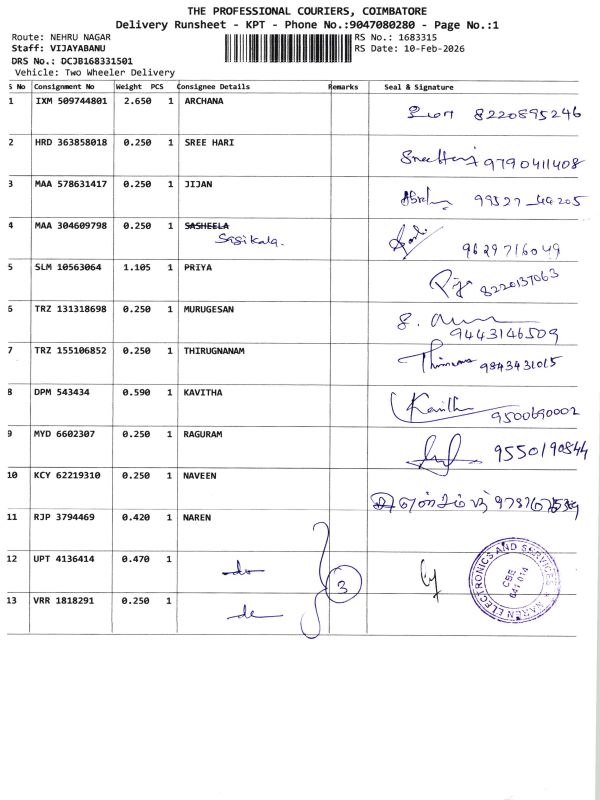 THE PROFESSIONAL COURIERS, COIMBATORE
Delivery Runsheet - KPT - Phone No.:9047080280 - Page No.:1
Route: NEHRU NAGAR RS No.: 1683315
Staff: VIJAYABANU RS Date: 10-Feb-2026
DRS No.: DCJB168331501
Vehicle: Two Wheeler Delivery
S No Consignment No Weight PCS Consignee Details Remarks Seal & Signature
1 IXM 509744801 2.650 1 ARCHANA 8220895246
2 HRD 363858018 0.250 1 SREE HARI SreeHari 9790411408
3 MAA 578631417 0.250 1 JIJAN
4 MAA 304609798 0.250 1 SASHEELA
Sasikala. 9629716049
5 SLM 10563064 1.105 1 PRIYA 8220137063
6 TRZ 131318698 0.250 1 MURUGESAN
9443146509
7 TRZ 155106852 0.250 1 THIRUGNANAM 9843431015
8 DPM 543434 0.590 1 KAVITHA Kavitha 9500690002
9 MYD 6602307 0.250 1 RAGURAM 9550190844
10 KCY 62219310 0.250 1 NAVEEN
11 RJP 3794469 0.420 1 NAREN
12 UPT 4136414 0.470 1 do 3
13 VRR 1818291 0.250 1 do
NAREN ELECTRONICS AND SERVICES
CBE
641 014